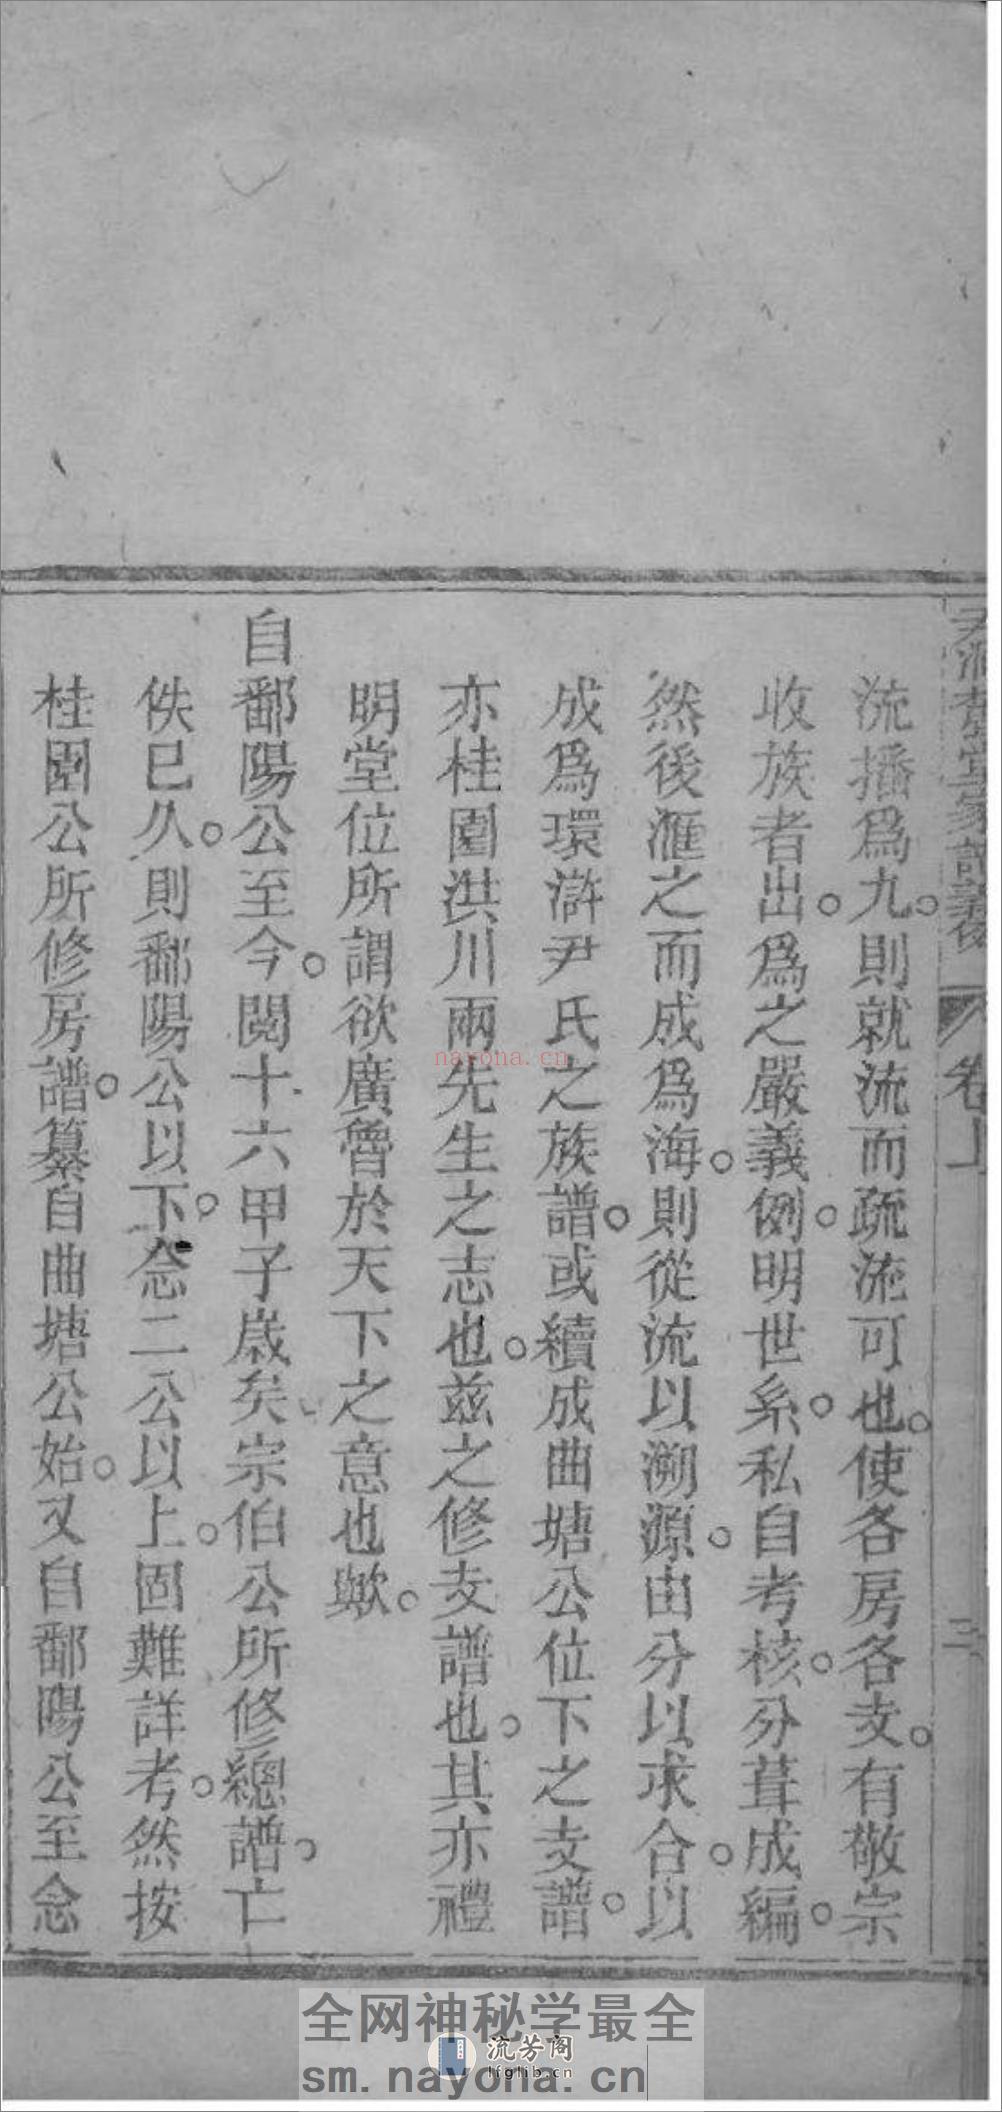 流播爲九。則就流而疏流可也。使各房各支。有敬宗
收族者出。爲之嚴義例。明世系。私自考核。分葺成編。
然後滙之而成爲海。則從流以溯源。由分以求合。以
成爲環滸尹氏之族譜。或續成曲塘公位下之支譜。
亦桂園洪川兩先生之志也。兹之修支譜也。其亦禮
明堂位所謂欲廣魯於天下之意也歟。
自鄱陽公至今。閱十六甲子歲矣、宗伯公所修總譜。亡
佚已久。則鄱陽公以下。念二公以上。固難詳考。然按
桂園公所修房譜。纂自曲塘公始。又自鄱陽公至念
卷上
二
nayona.cn
全网神秘学最全
流芳阁
lfglib.cn
sm.nayona.cn